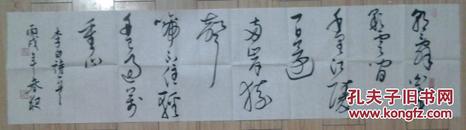 朝辞白帝
彩云间
千里江陵
一日還
两岸猿
聲
啼不住轻
舟已过萬
重山
李白诗一首
丙戌年春
孔夫子旧书网